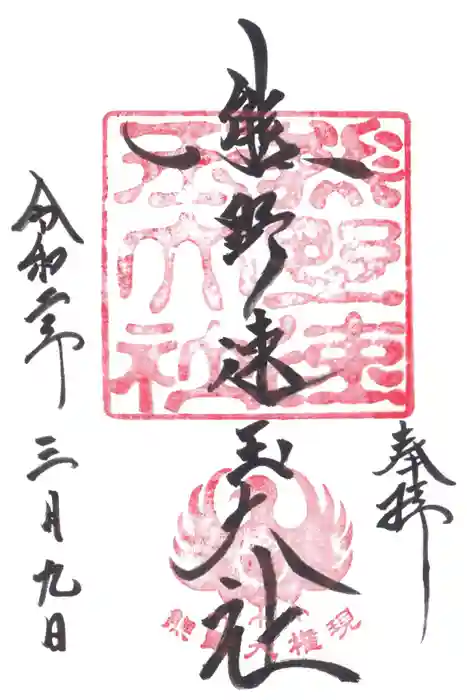 奉拝
熊野速玉大社
熊野速
玉大社
熊野大権現
令和年三月九日